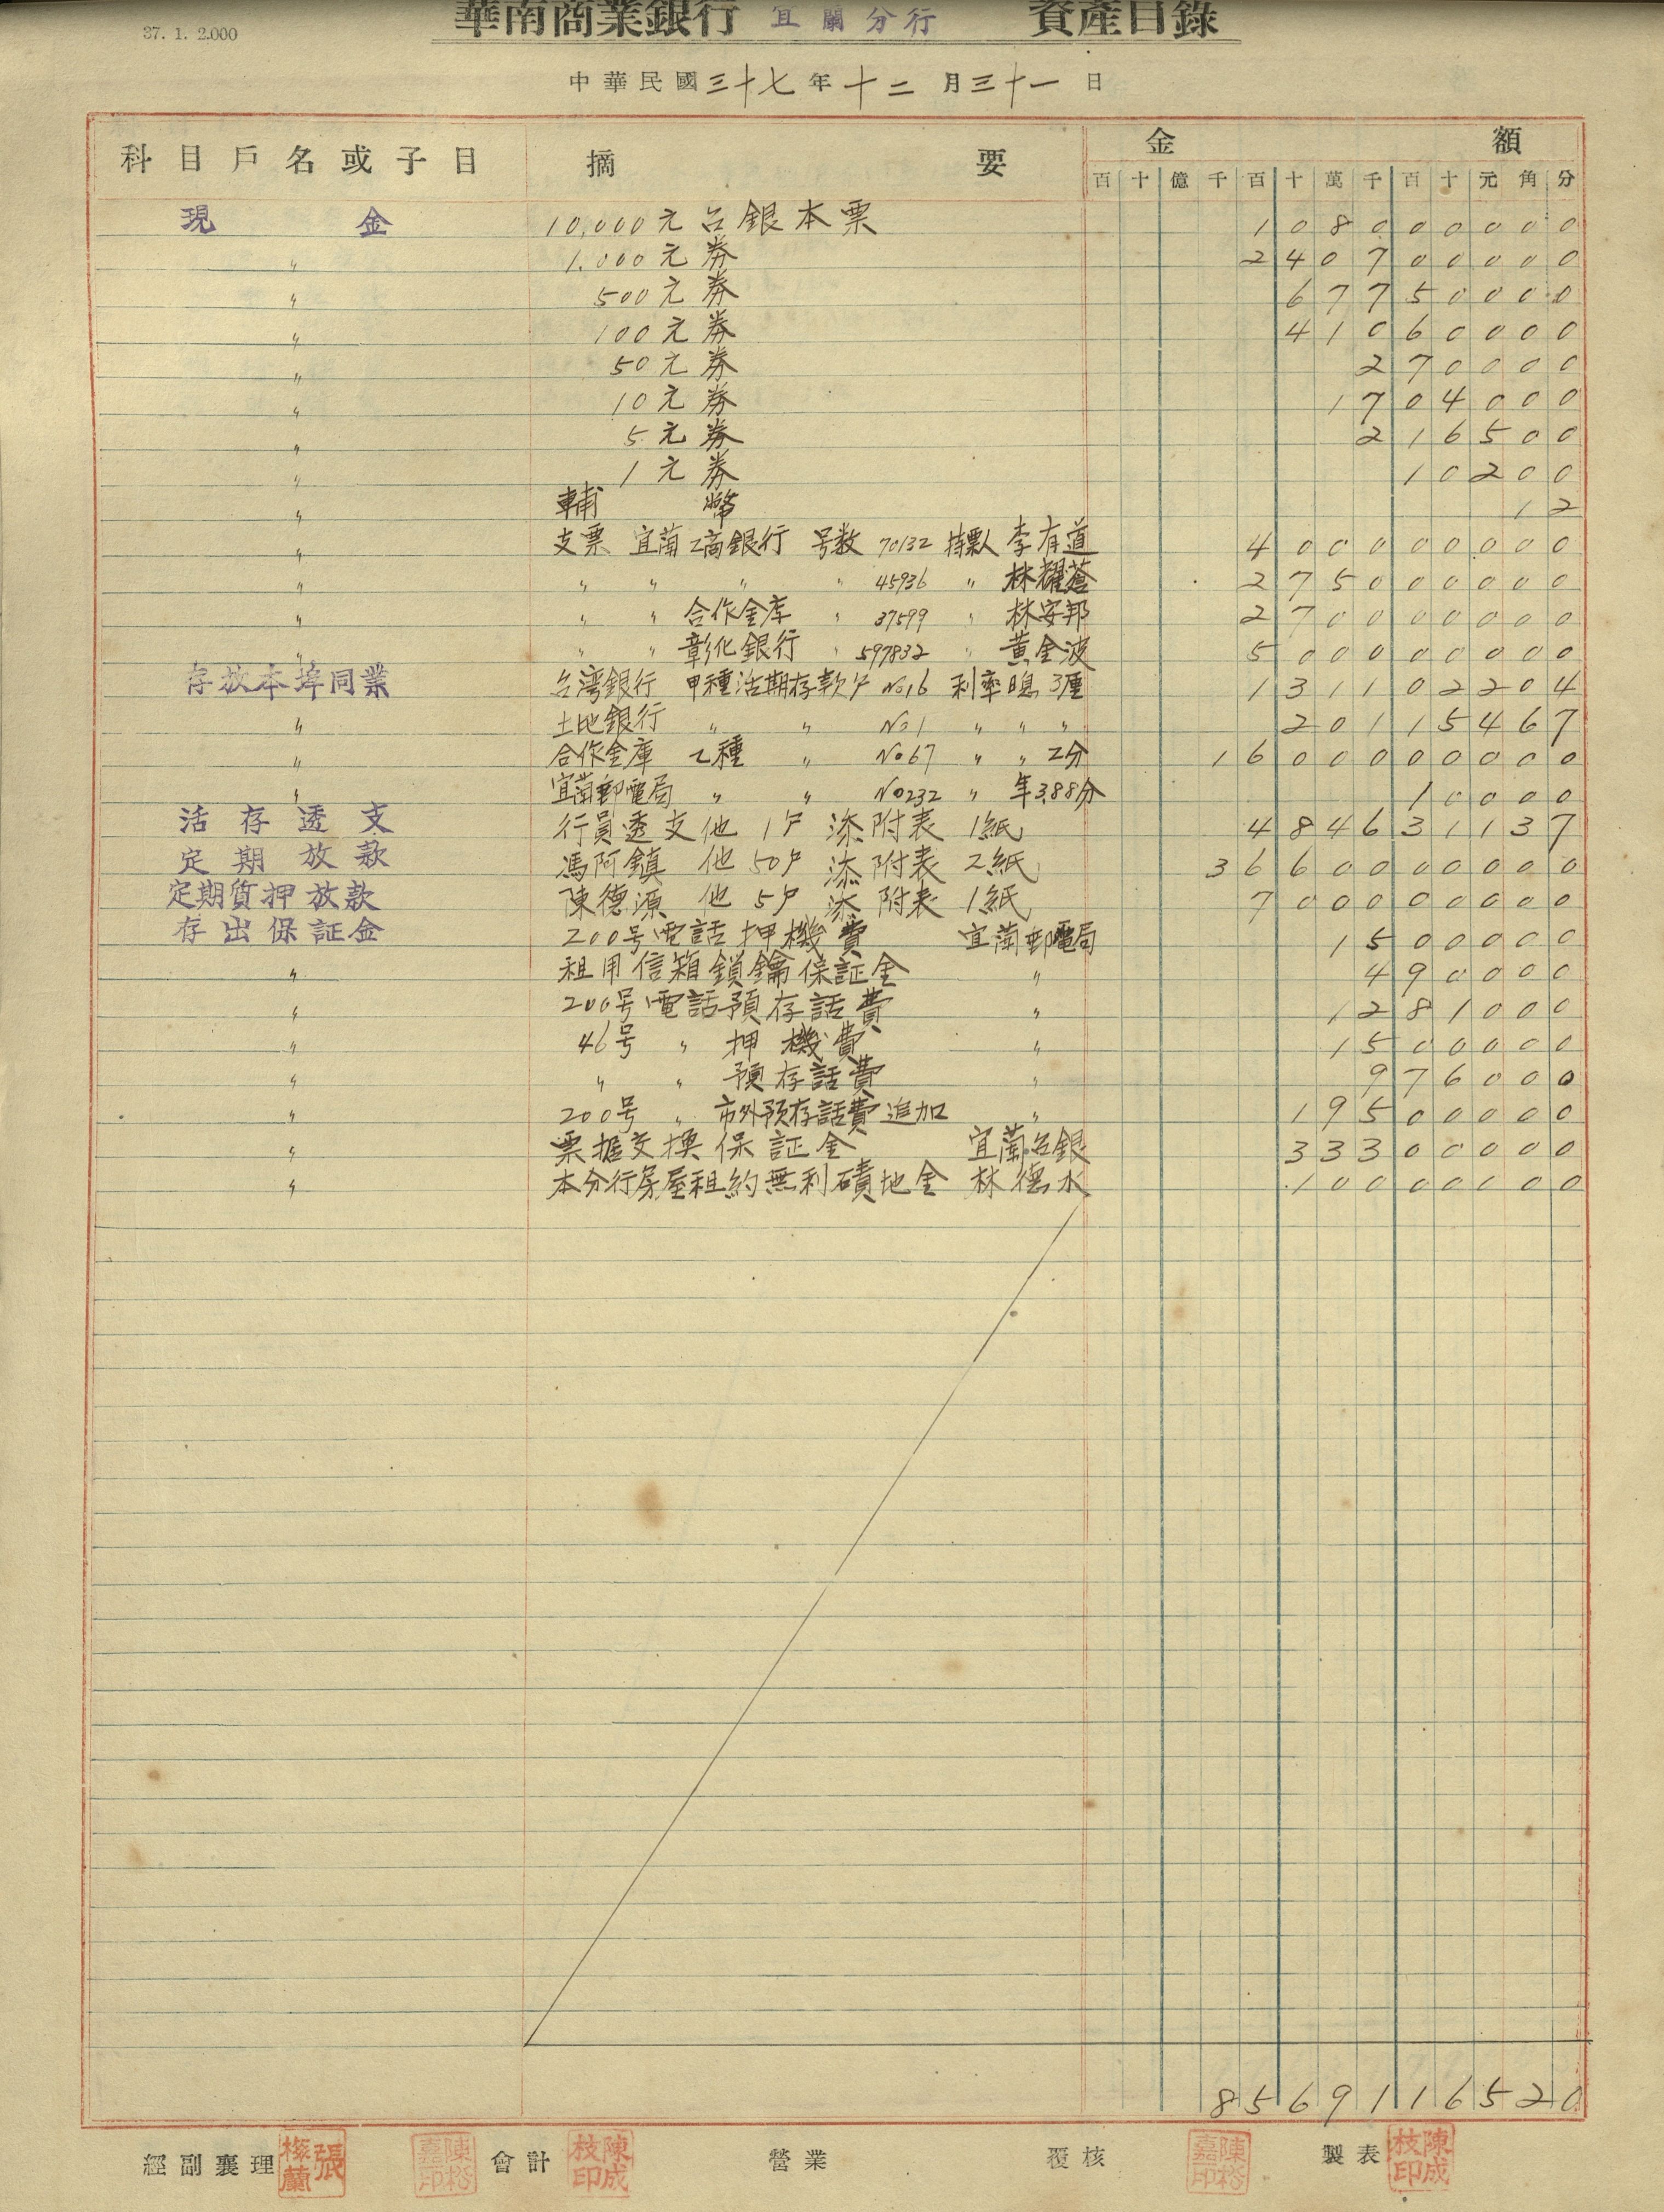 37. 1. 2.000
華南商業銀行 宜蘭分行 資產目錄
中華民國三十七年十二月三十一日
科目戶名或子目 摘要 金額
百 十 億 千 百 十 萬 千 百 十 元 角 分
現金 10,000元台銀本票 1 0 8 0 0 0 0 0 0
〃 1,000元券 2 4 0 7 0 0 0 0 0
〃 500元券 6 7 7 5 0 0 0 0
〃 100元券 4 1 0 6 0 0 0 0
〃 50元券 2 7 0 0 0 0
〃 10元券 1 7 0 4 0 0 0
〃 5元券 2 1 6 5 0 0
〃 1元券 1 0 2 0 0
〃 輔幣 1 2
〃 支票 宜蘭工商銀行 号数 70132 持票人 李有道 4 0 0 0 0 0 0 0 0
〃 〃 〃 〃 〃 45936 〃 林耀蒼 2 7 5 0 0 0 0 0 0
〃 〃 〃 合作金库 〃 37599 〃 林安邦 2 7 0 0 0 0 0 0 0
〃 〃 〃 彰化銀行 〃 597832 〃 黃金波 5 0 0 0 0 0 0 0 0
存放本埠同業 台湾銀行 甲種活期存款戶 No16 利率日息 3厘 1 3 1 1 0 2 2 0 4
〃 土地銀行 〃 〃 No1 〃 〃 〃 2 0 1 1 5 4 6 7
〃 合作金庫 乙種 〃 No67 〃 〃 2分 1 6 0 0 0 0 0 0 0 0
〃 宜蘭郵電局 〃 〃 No232 〃 年3.88分 1 0 0 0 0
活存透支 行員透支他 1戶 添附表 1紙 4 8 4 6 3 1 1 3 7
定期放款 馮阿鎮 他 50戶 添附表 2紙 3 6 6 0 0 0 0 0 0 0
定期質押放款 陳德源 他 5戶 添附表 1紙 7 0 0 0 0 0 0 0 0
存出保証金 200号電話押機費 宜蘭郵電局 1 5 0 0 0 0 0
〃 租用信箱鎖鑰保証金 〃 4 9 0 0 0 0
〃 200号電話預存話費 〃 1 2 8 1 0 0 0
〃 46号 〃 押機費 〃 1 5 0 0 0 0 0
〃 〃 〃 預存話費 〃 9 7 6 0 0 0
〃 200号 〃 市外預存話費追加 〃 1 9 5 0 0 0 0 0
〃 票據交換保証金 宜蘭台銀 3 3 3 0 0 0 0 0
〃 本分行房屋租約無利磧地金 林德水 1 0 0 0 0 0 0 0
8 5 6 9 1 1 6 5 2 0
經副襄理 張梅蘭 會計 陳成枝印 營業 覆核 製表 陳成枝印